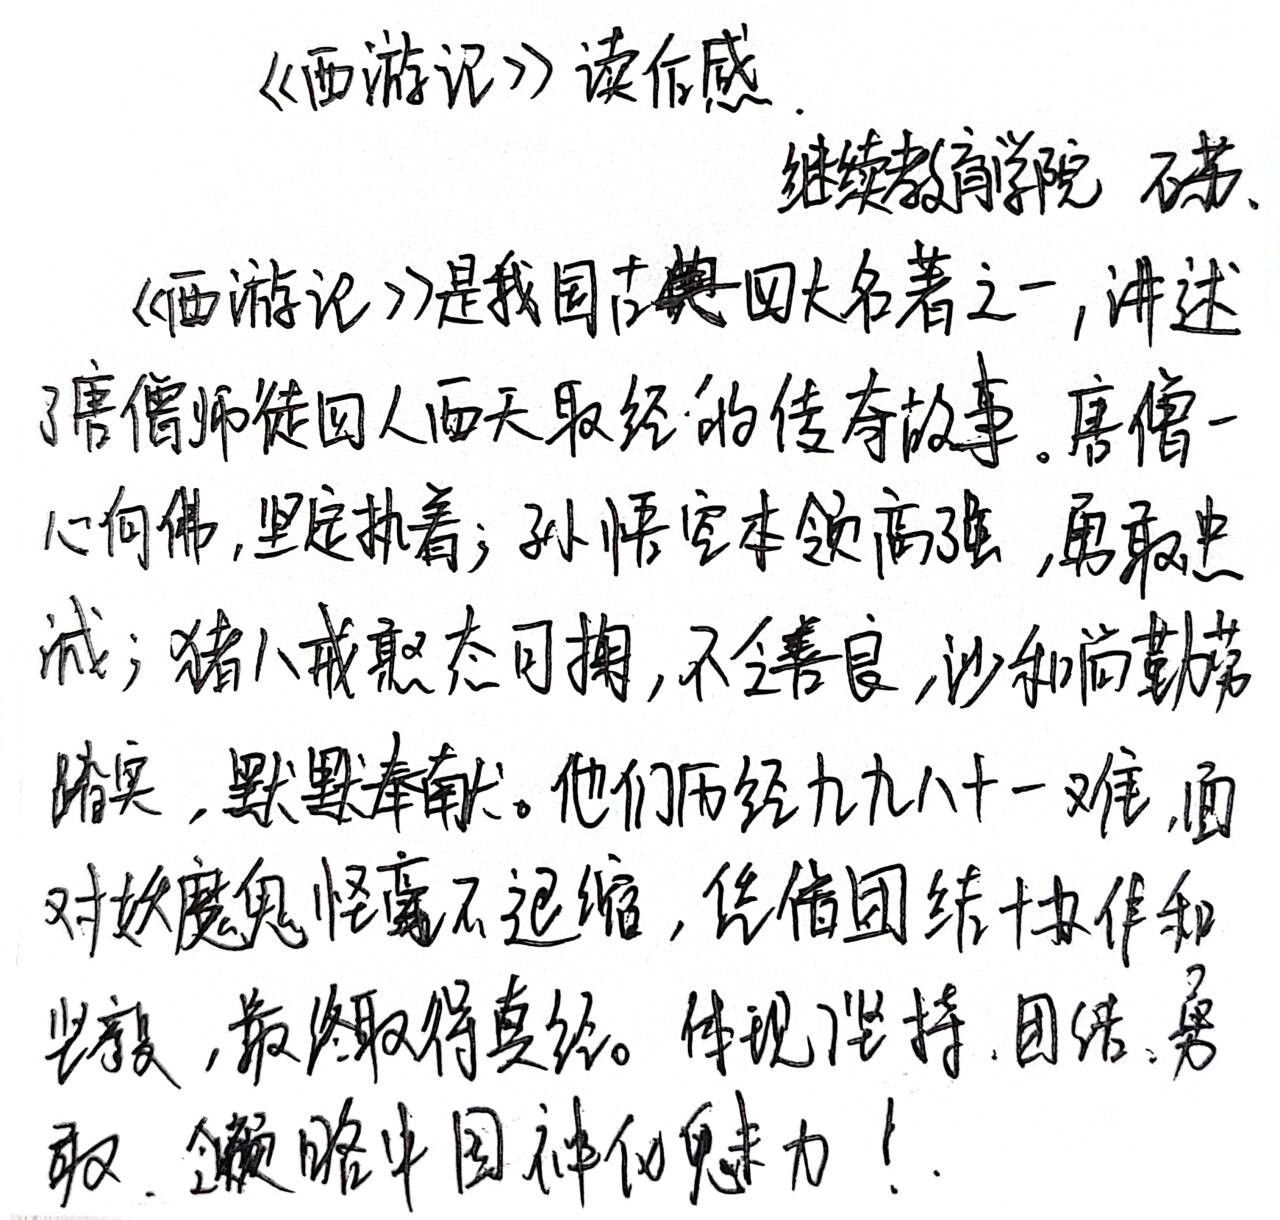 《西游记》读后感.
继续教育学院 石苏、
《西游记》是我国古典四大名著之一,讲述
了唐僧师徒四人西天取经的传奇故事。唐僧一
心向佛,坚定执着;孙悟空本领高强,勇敢忠
诚;猪八戒憨态可掬,不乏善良,沙和尚勤劳
踏实,默默奉献。他们历经九九八十一难,面
对妖魔鬼怪毫不退缩,凭借团结协作和
坚毅,最终取得真经。体现了坚持、团结、勇
敢、领略中国神化魅力!